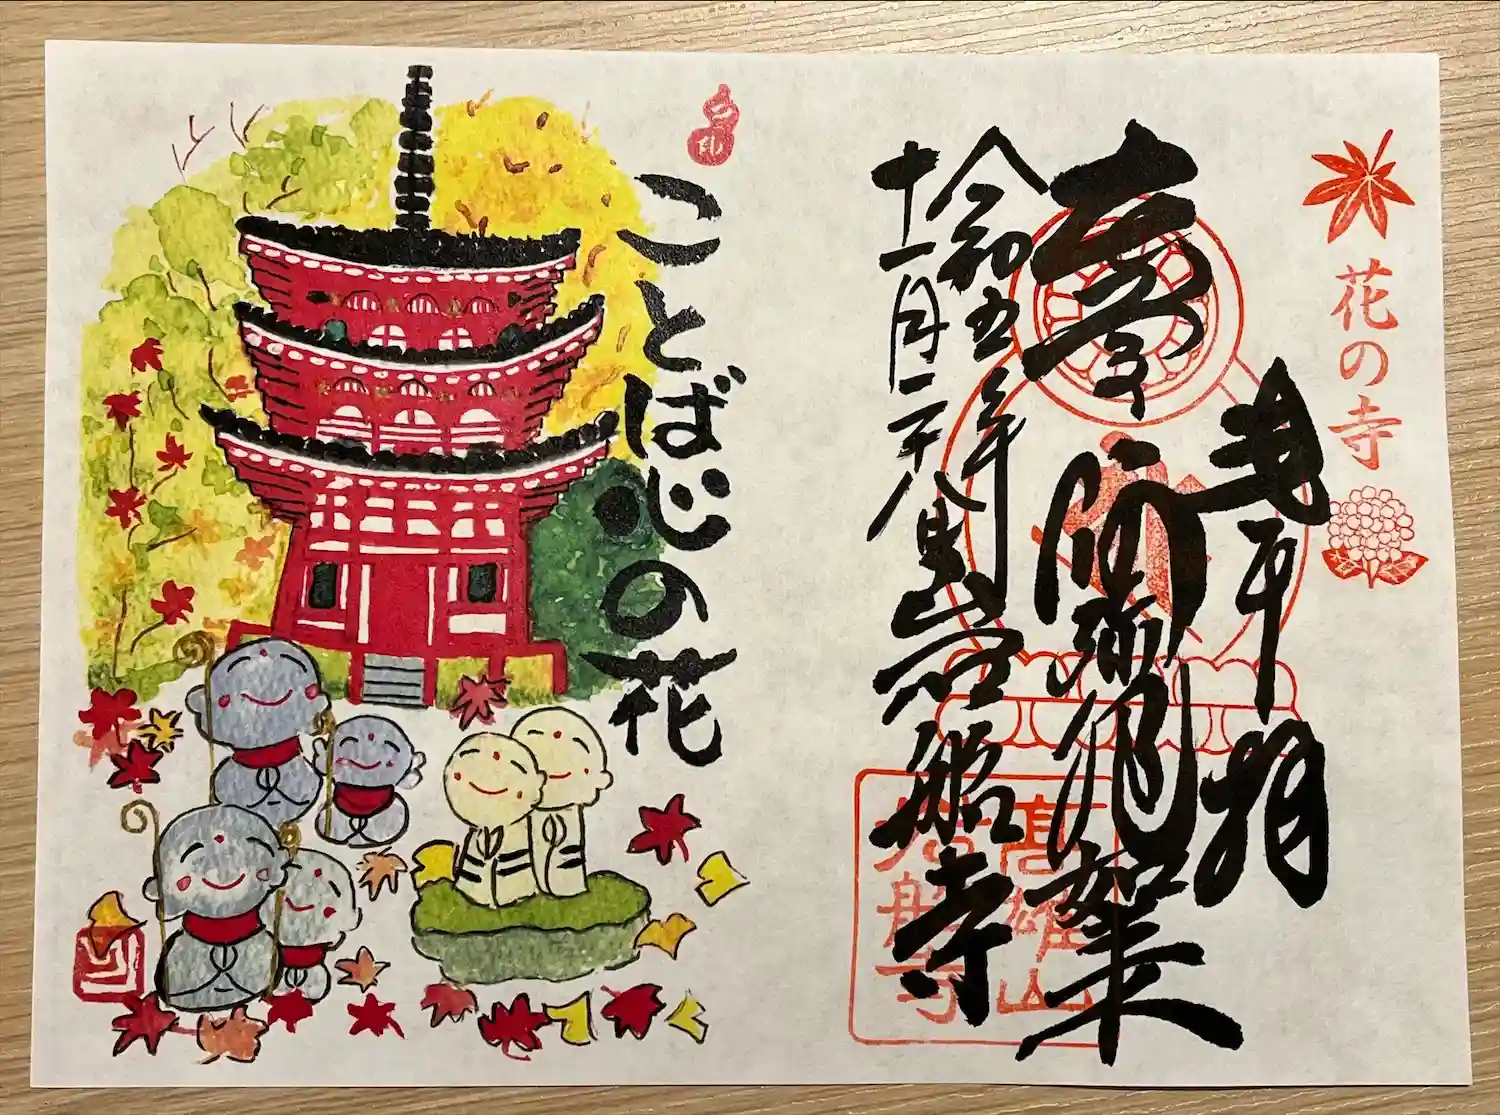 花の寺
拝
阿弥陀如来
令和五年
十一月二十八日
岩船寺
高雄山
岩船寺
ことば心の花